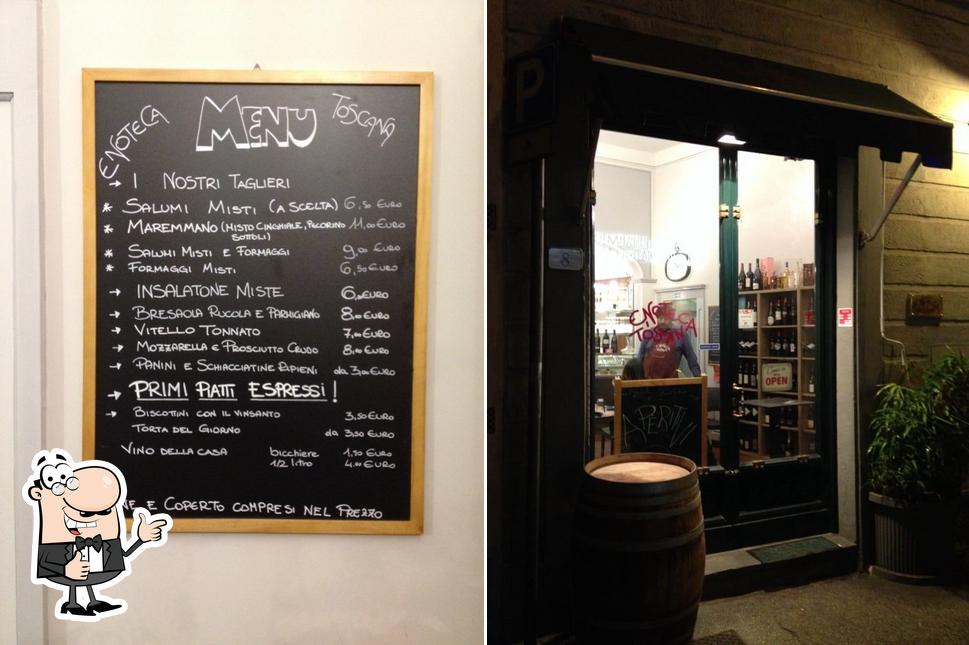 ENOTECA MENU TOSCANA
→ I NOSTRI TAGLIERI
* SALUMI MISTI (A SCELTA) 6,50 EURO
* MAREMMANO (MISTO CINGHIALE, PECORINO 11,00 EURO
SOTTOLI)
* SALUMI MISTI E FORMAGGI 9,00 EURO
* FORMAGGI MISTI 6,50 EURO
→ INSALATONE MISTE 6,00 EURO
→ BRESAOLA RUCOLA E PARMIGIANO 8,00 EURO
→ VITELLO TONNATO 7,00 EURO
→ MOZZARELLA E PROSCIUTTO CRUDO 8,00 EURO
→ PANINI E SCHIACCIATINE RIPIENI da 3,00 EURO
→ PRIMI PIATTI ESPRESSI!
→ BISCOTTINI CON IL VINSANTO 3,50 EURO
TORTA DEL GIORNO da 3,50 EURO
VINO DELLA CASA bicchiere 1,50 EURO
1/2 litro 4,00 EURO
NE E COPERTO COMPRESI NEL PREZZO
P
8
ENOTECA
TOSCANA
OPEN
APERITIVI